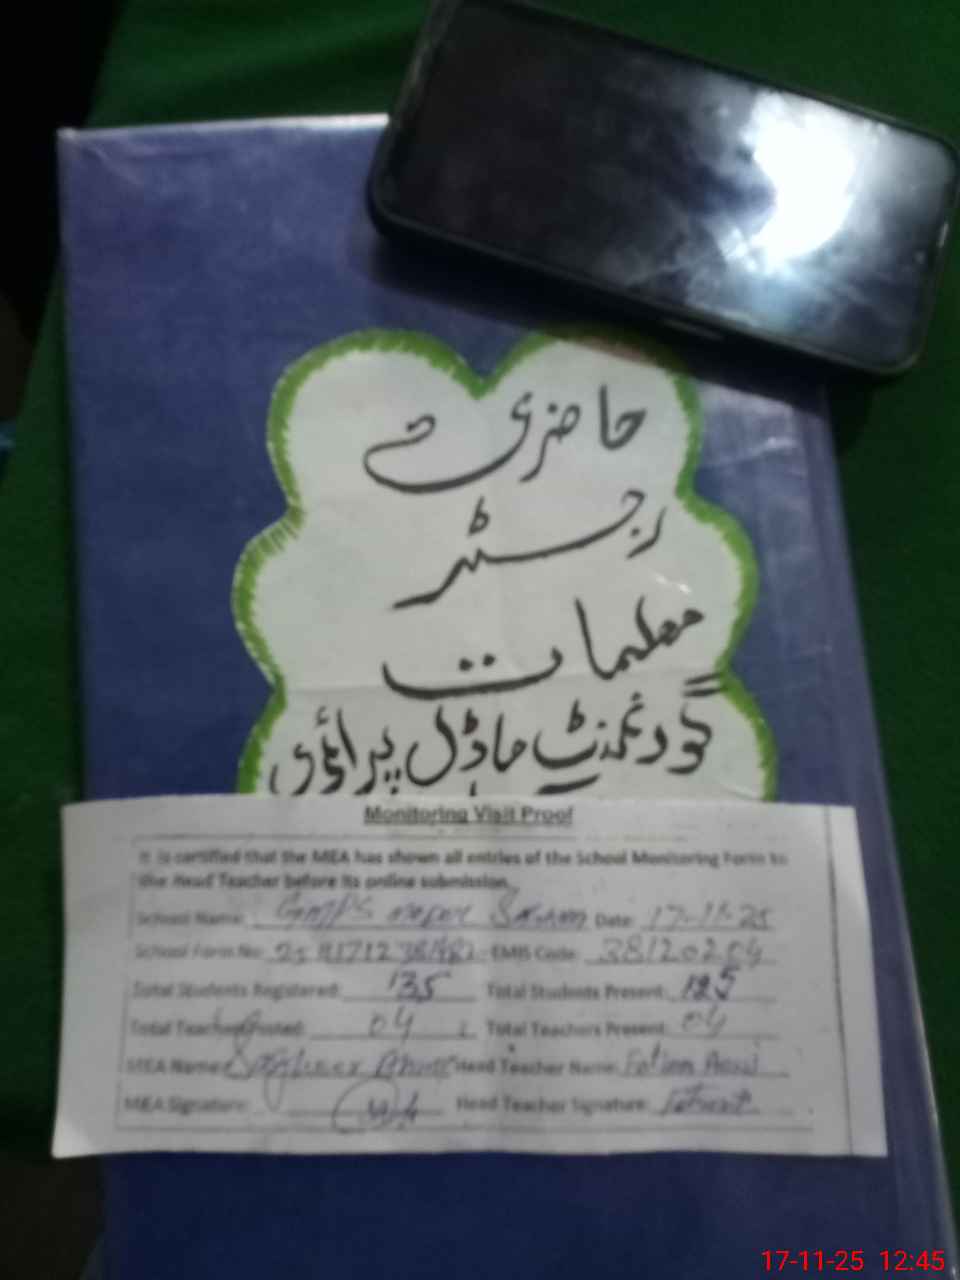 حاضری
رجسٹر
معلمات
گورنمنٹ ماڈل پرائمری
Monitoring Visit Proof
It is certified that the MEA has shown all entries of the School Monitoring Form to
the Head Teacher before its online submission.
School Name: GMPS Date: 17-11-25
School Form No: EMIS Code: 38120204
Total Students Registered: 135 Total Students Present: 125
Total Teachers Posted: 04 Total Teachers Present: 04
MEA Name: Head Teacher Name:
MEA Signature: Head Teacher Signature:
17-11-25 12:45